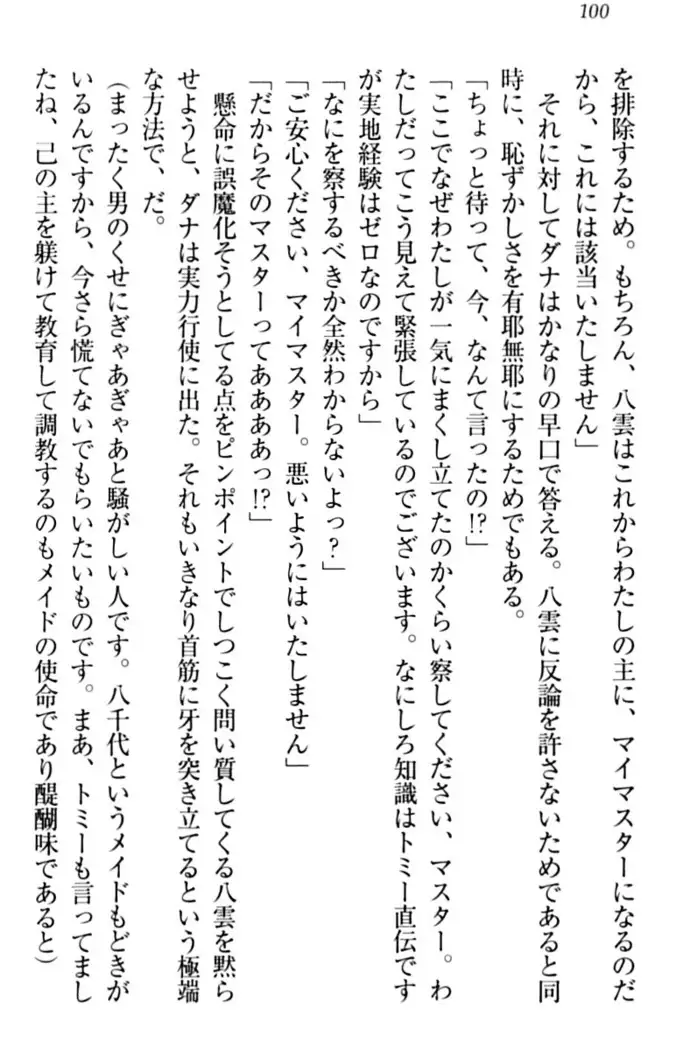 100
を排除するため。もちろん、八雲はこれからわたしの主に、マイマスターになるのだ
から、これには該当いたしません」
　それに対してダナはかなりの早口で答える。八雲に反論を許さないためであると同
時に、恥ずかしさを有耶無耶にするためでもある。
「ちょっと待って、今、なんて言ったの!?」
「ここでなぜわたしが一気にまくし立てたのかくらい察してください、マスター。わ
たしだってこう見えて緊張しているのでございます。なにしろ知識はトミー直伝です
が実地経験はゼロなのですから」
「なにを察するべきか全然わからないよっ？」
「ご安心ください、マイマスター。悪いようにはいたしません」
「だからそのマスターってああああっ!?」
　懸命に誤魔化そうとしてる点をピンポイントでしつこく問い質してくる八雲を黙ら
せようと、ダナは実力行使に出た。それもいきなり首筋に牙を突き立てるという極端
な方法で、だ。
（まったく男のくせにぎゃあぎゃあと騒がしい人です。八千代というメイドもどきが
いるんですから、今さら慌てないでもらいたいものです。まあ、トミーも言ってまし
たね、己の主を躾けて教育して調教するのもメイドの使命であり醍醐味であると）